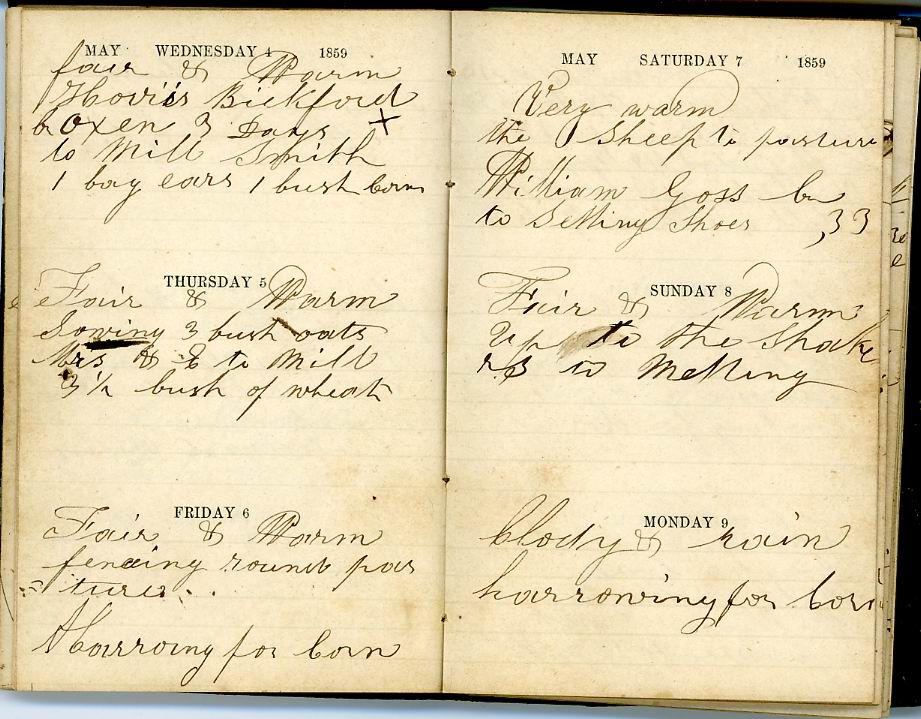 MAY WEDNESDAY 4 1859
fair & Warm
Bickford
Oxen 3 Days X
to Mill Smith
1 bag ears 1 bush corn
THURSDAY 5
Fair & Warm
Sowing 3 bush oats
Mrs & E to Mill
3 1/2 bush of wheat
FRIDAY 6
Fair & Warm
fencing round pas
tures
Harroing for Corn
MAY SATURDAY 7 1859
Very warm
the Sheep to pasture
William Goss
to Setting Shoes ,33
SUNDAY 8
Fair & Warm
Up to the Shake
rs to Metting
MONDAY 9
Clody & rain
harrowing for Corn